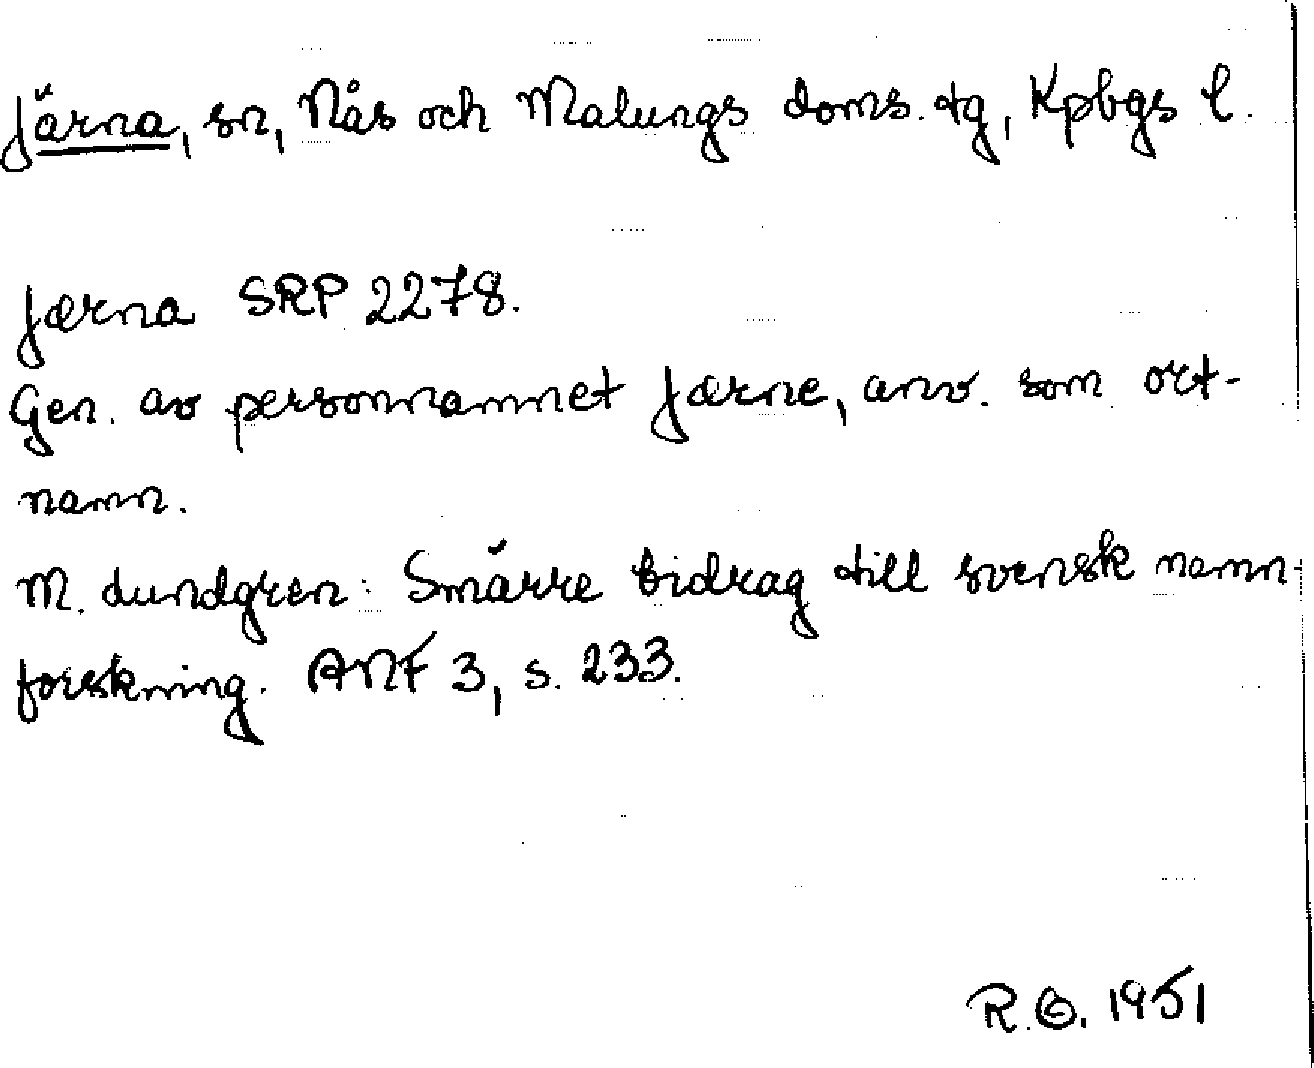 Järna, sn, Nås och Malungs doms. tg, Kpbgs l.
Jærna SRP 2278.
Gen. av personnamnet Jærne, anv. som ort-
namn.
M. Lundgren: Smärre bidrag till svensk namn-
forskning. ANF 3, s. 233.
R.G. 1951